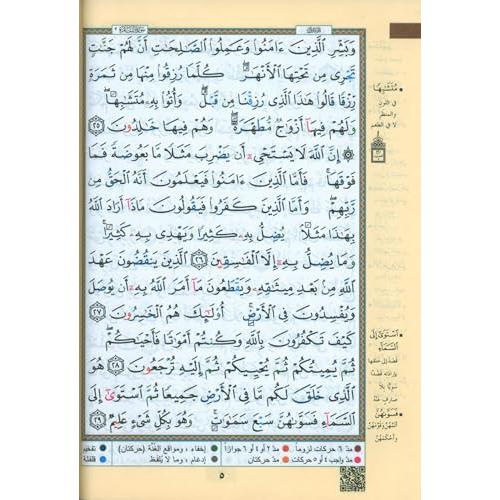 سورة البقرة ٢
وَبَشِّرِ الَّذِينَ ءَامَنُوا وَعَمِلُوا الصَّـٰلِحَـٰتِ أَنَّ لَهُمْ جَنَّـٰتٍ
تَجْرِى مِن تَحْتِهَا الْأَنْهَـٰرُ ۖ كُلَّمَا رُزِقُوا مِنْهَا مِن ثَمَرَةٍ
رِّزْقًا قَالُوا هَـٰذَا الَّذِى رُزِقْنَا مِن قَبْلُ ۖ وَأُتُوا بِهِۦ مُتَشَـٰبِهًا ۖ
وَلَهُمْ فِيهَآ أَزْوَٰجٌ مُّطَهَّرَةٌ ۖ وَهُمْ فِيهَا خَـٰلِدُونَ ٢٥
۞ إِنَّ اللَّهَ لَا يَسْتَحْىِۦٓ أَن يَضْرِبَ مَثَلًا مَّا بَعُوضَةً فَمَا
فَوْقَهَا ۚ فَأَمَّا الَّذِينَ ءَامَنُوا فَيَعْلَمُونَ أَنَّهُ الْحَقُّ مِن
رَّبِّهِمْ ۖ وَأَمَّا الَّذِينَ كَفَرُوا فَيَقُولُونَ مَاذَآ أَرَادَ اللَّهُ
بِهَـٰذَا مَثَلًا ۘ يُضِلُّ بِهِۦ كَثِيرًا وَيَهْدِى بِهِۦ كَثِيرًا ۚ
وَمَا يُضِلُّ بِهِۦٓ إِلَّا الْفَـٰسِقِينَ ٢٦ الَّذِينَ يَنقُضُونَ عَهْدَ
اللَّهِ مِن بَعْدِ مِيثَـٰقِهِۦ وَيَقْطَعُونَ مَآ أَمَرَ اللَّهُ بِهِۦٓ أَن يُوصَلَ
وَيُفْسِدُونَ فِى الْأَرْضِ ۚ أُولَـٰٓئِكَ هُمُ الْخَـٰسِرُونَ ٢٧
كَيْفَ تَكْفُرُونَ بِاللَّهِ وَكُنتُمْ أَمْوَٰتًا فَأَحْيَـٰكُمْ ۖ
ثُمَّ يُمِيتُكُمْ ثُمَّ يُحْيِيكُمْ ثُمَّ إِلَيْهِ تُرْجَعُونَ ٢٨ هُوَ
الَّذِى خَلَقَ لَكُم مَّا فِى الْأَرْضِ جَمِيعًا ثُمَّ اسْتَوَىٰٓ إِلَى
السَّمَآءِ فَسَوَّىٰهُنَّ سَبْعَ سَمَـٰوَٰتٍ ۚ وَهُوَ بِكُلِّ شَىْءٍ عَلِيمٌ ٢٩
مُتَشَـٰبِهًا
في اللون
والمنظر
لا في الطعم
اسْتَوَىٰ إِلَى
السَّمَاءِ
فَسَوَّىٰهُنَّ
مدّ ٦ حركات لزوماً مدّ ٢ أو ٤ أو ٦ جوازاً إخفاء ، ومواقع الغنّة (حركتان)
مدّ واجب ٤ أو ٥ حركات مدّ حركتان إدغام ، وما لا يُلفظ قلقلة
٥